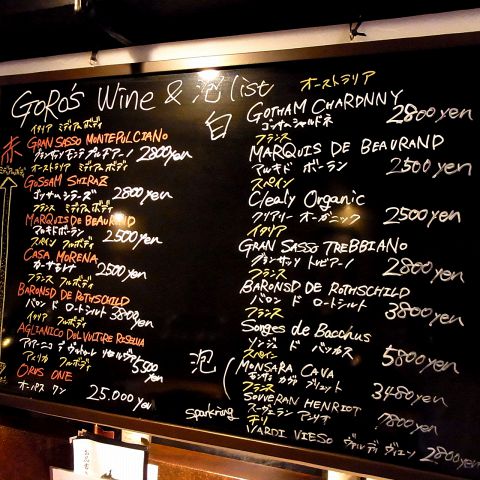 GORO'S Wine & 泡 list
赤
イタリア ミディアムボディ
GRAN SASSO MONTEPULCIANO
グランサッソ モンテプルチアーノ 2800yen
オーストラリア ミディアムボディ
GOSSAM SHIRAZ
ゴッサム シラーズ 2800yen
フランス ミディアムボディ
MARQUIS DE BEAURAND
マルキドボーラン 2500yen
スペイン フルボディ
CASA MORENA
カーサモレナ 2500yen
フランス フルボディ
BARONSD DE ROTHSCHILD
バロン ド ロートシルト 3800yen
イタリア フルボディ
AGLIANICO DOL VULTIRE RESELVA
5500yen
アメリカ フルボディ
ORUS ONE
オーパス ワン 25.000yen
白
オーストラリア
GOTHAM CHARDNNY
ゴッサムシャルドネ 2800yen
フランス
MARQUIS DE BEAURAND
マルキド ボーラン 2500yen
スペイン
Clealy Organic
クリアリー オーガニック 2500yen
イタリア
GRAN SASSO TREBBIANO
グランサッソ トレビアーノ 2800yen
フランス
BARONSD DE ROTHSCHILD
バロン ド ロートシルト 3800yen
フランス
Songes de Bacchus
ソンジュ ド バッカス 5800yen
泡
sparkring
スペイン
MONSARA CAVA
モンサラ カヴァ ブリュット 3480yen
フランス
SOUVERAN HENRIOT
スーヴェラン アンリオ 7800yen
チリ
VARDI VIESO ヴァルディ ヴィエソ 2800yen